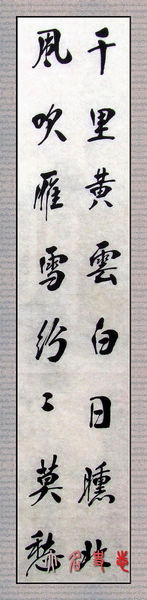 千里黃雲白日曛北
風吹雁雪紛〻莫愁